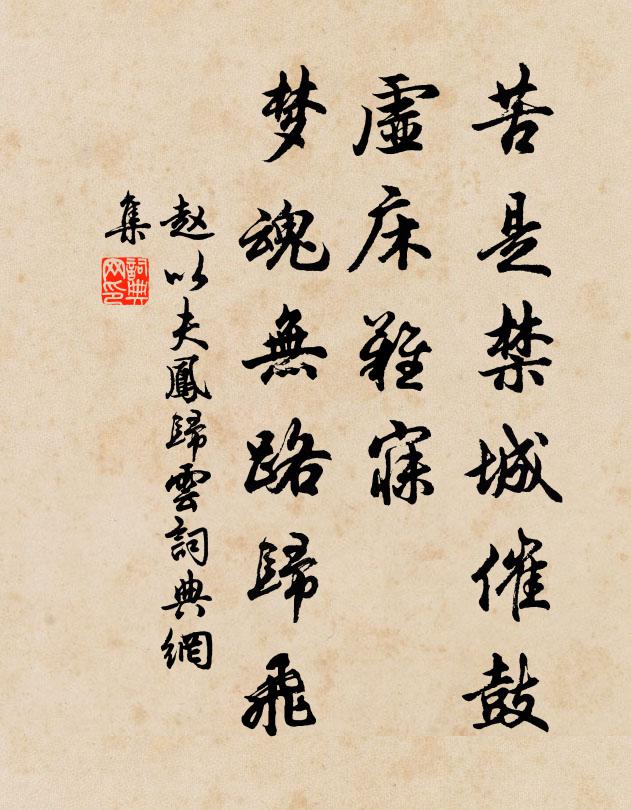 苦是禁城催鼓
虛床難寐
梦魂無路歸飛
赵以夫鳳歸雲詞典網
集
詞典
网印